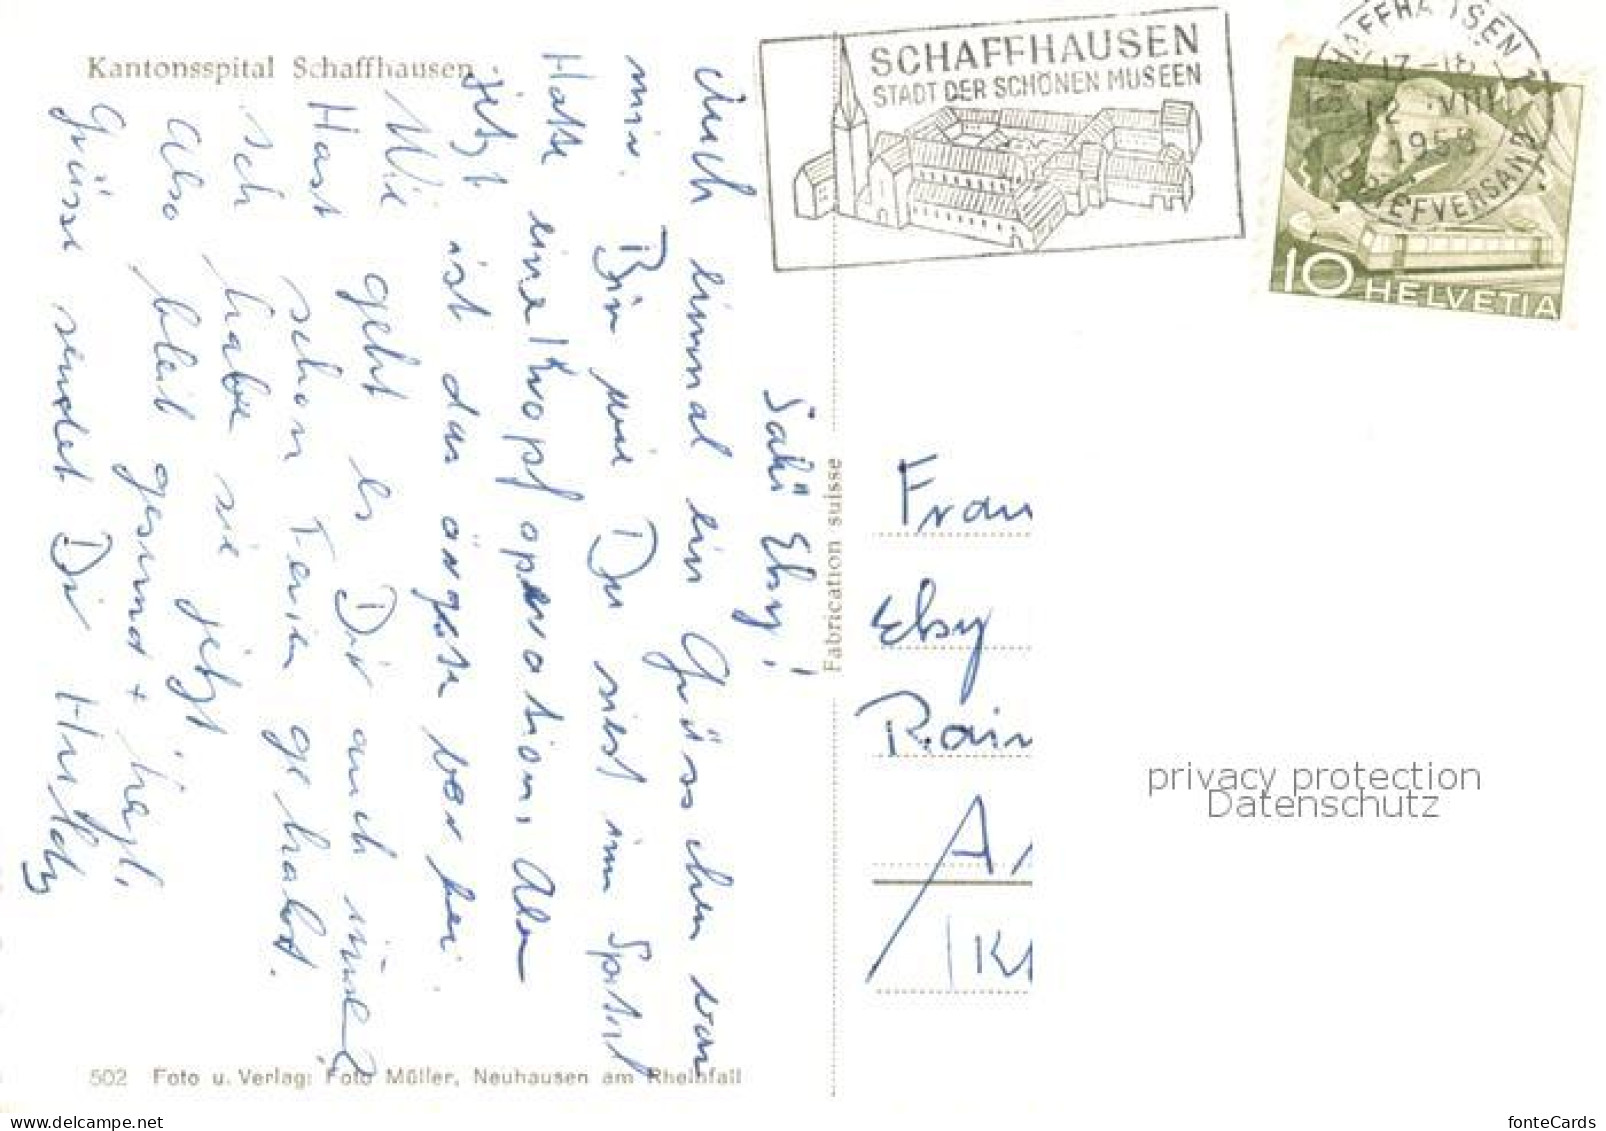 Kantonsspital Schaffhausen
SCHAFFHAUSEN
STADT DER SCHÖNEN MUSEEN
SCHAFFHAUSEN
17-18
12. VIII.
BRIEFVERSAND
10 HELVETIA
Sali Elsy!
Auch einmal ein Grüsschen von
mir. Bin wie Du siest im Spital
Hatte eine Kropfoperation, Aber
jetzt ist das ärgste vorbei.
Wie geht es Dir auch immer?
Hast schon Ferien gehabt.
Ich habe sie jetzt.
Also bleib gesund +
Grüsse sendet Dir
Fabrication suisse
Frau
Elsy
Rain
A
Ka
502 Foto u. Verlag: Foto Müller, Neuhausen am Rheinfall
privacy protection
Datenschutz
https://www.delcampe.net
fonteCards